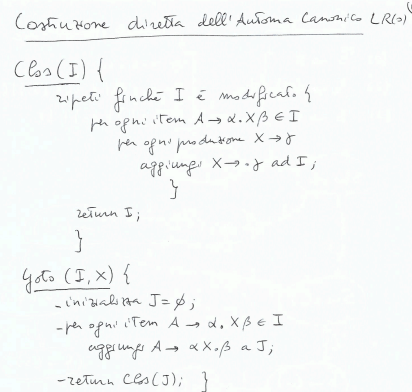 Costruzione diretta dell'Automa Canonico LR(0)
Clos(I) {
ripeti finché I è modificato {
per ogni item A → α.Xβ ∈ I
per ogni produzione X → γ
aggiungi X → .γ ad I;
}
return I;
}
Goto (I, X) {
- inizializza J = ∅;
- per ogni item A → α.Xβ ∈ I
aggiungi A → αX.β a J;
- return Clos(J); }